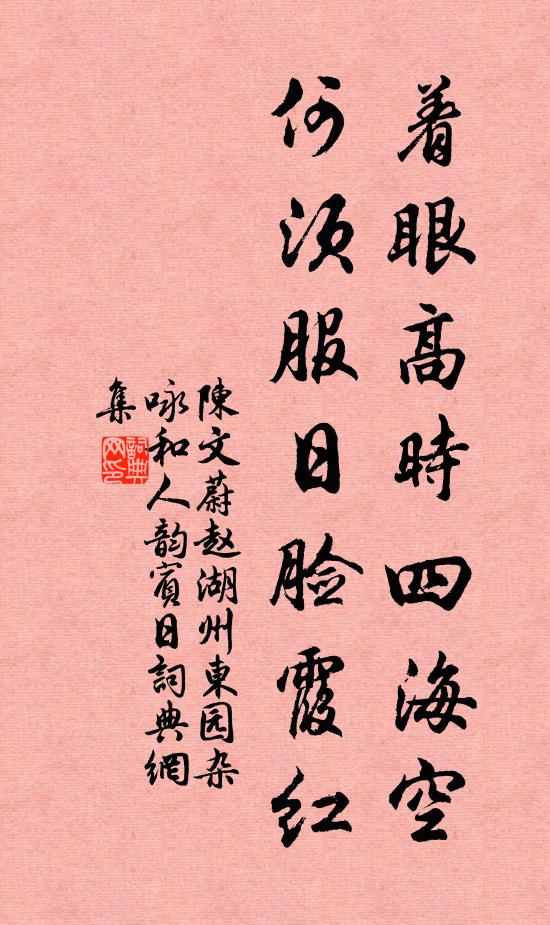 着眼高時四海空
何須服日脸霞红
陳文蔚赵湖州東园杂
咏和人韵賓日詞典網
集
詞典
网印